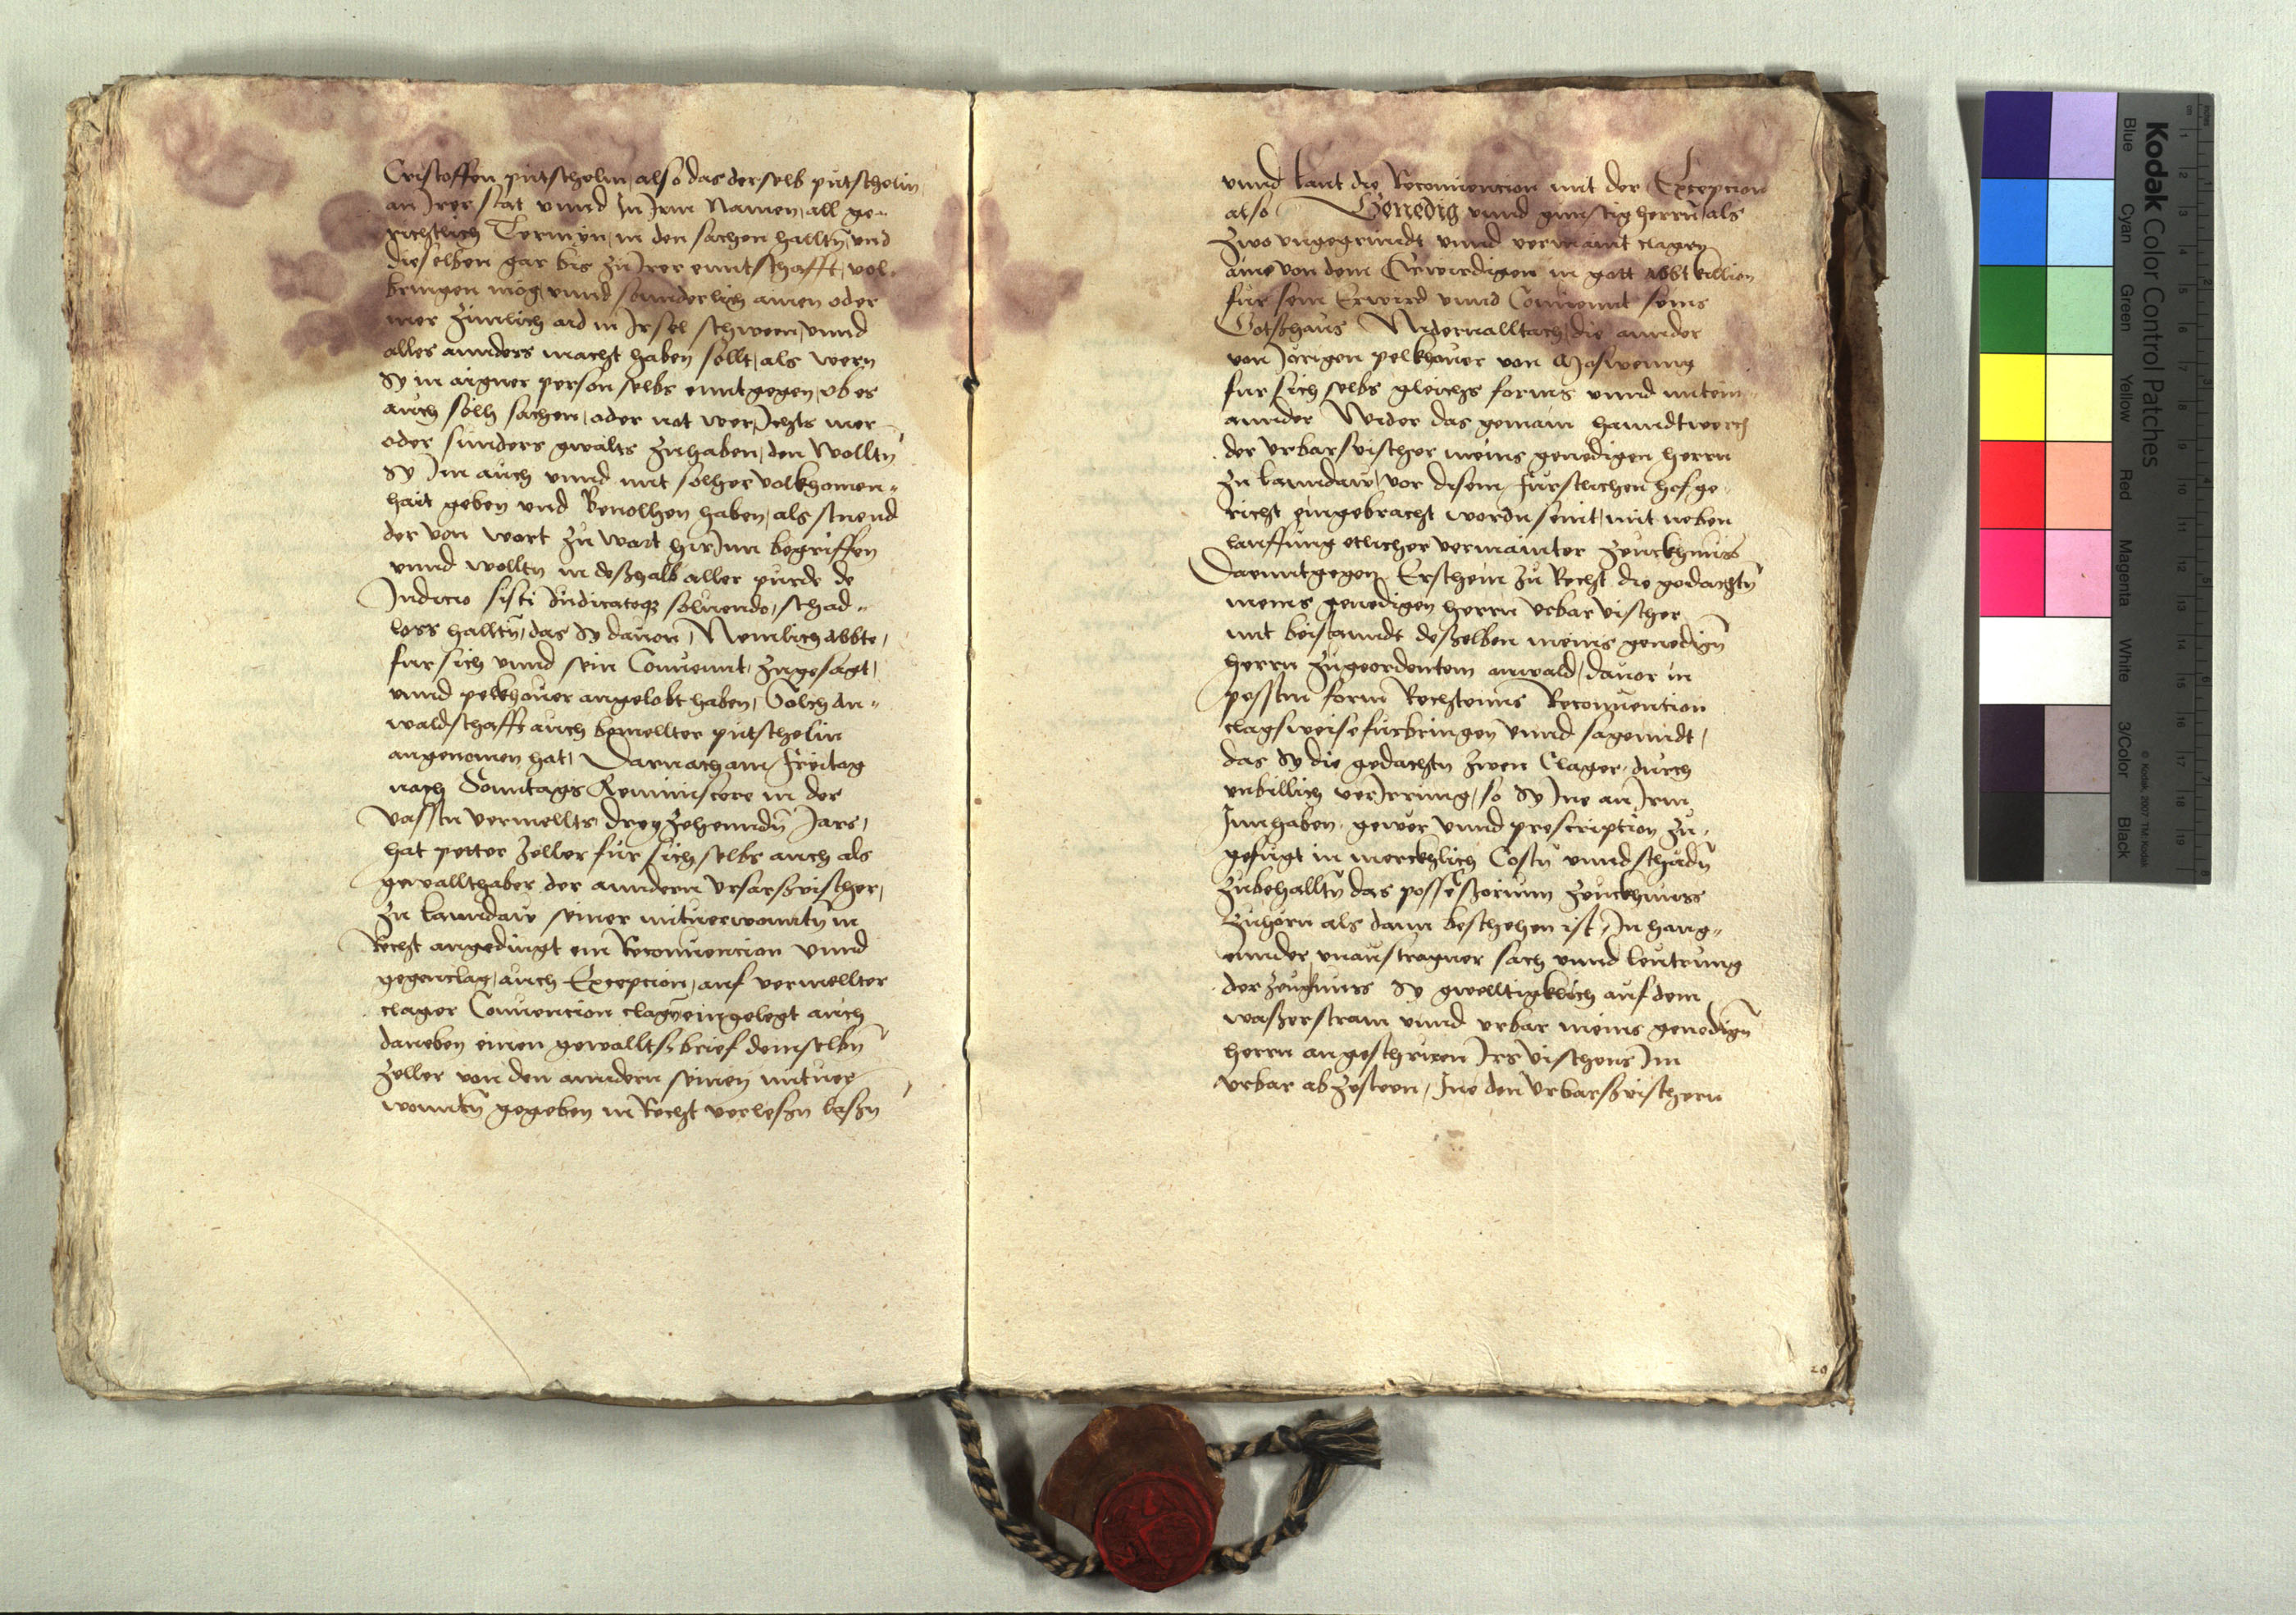 Cristoffen pütschelin, also das derselb pütschelin
an Irer stat vnnd In Irm Namen, all ge-
richtlich Termyn, in den sachen halltn, vnd
dieselben gar bis zu Irer enntschafft, vol-
bringen mög, vnnd sonnderlich ainen oder
mer zimlich aid in Ir sel schweren, vnnd
alles annders macht haben sollt, als wern
Sy in aigner person selbs enntgegen, ob es
auch sölh sachen, oder not wer, Ichts mer
oder sunders gwalts zuhaben, den wolltn
Sy Im auch vnnd mit solher volkhomen-
hait geben vnd Beuolhen haben, als stuend
der von wort zu wort hirInn begriffen
vnnd wolltn in deßhalb aller pürde de
Iudicio sisti Iudicatoqz soluendo, schad-
loss halltn, das Sy dauon, Nemlich Abbte,
fur sich vnnd sein Conuennt, zugesagt,
vnnd pelkhouer angelobt haben, Sölch An-
waldschafft auch bemellter pütschelin
angenomen hat, Darnach am Freitag
nach Sonntags Reminiscere in der
vasstn vermellts dreyzehenndn Jars,
hat petter Zeller für sich selbs auch als
gewallthaber der anndern Vrfarsvischer,
zu Lanndaw seiner mituerwonntn in
Recht angedingt ein Reconuencion vnnd
gegenclag, auch Excepcion, auf vermellter
clager Conuencion clagn eingelegt auch
daneben einen gewalltsbrief demselbn
Zeller von den anndern seinen mituer
wonntn gegeben in Recht verlesen lassn
vnnd laut die Reconuencion mit der Excepcion
also Genedig vnnd günstig herrn, als
zwo vngegründt vnnd vermaint clagen
aine von dem Erwirdigen in gott Abbt kilian
für sein Erwird vnnd Conuennt seins
Gotzhaus Nidernalltach, die annder
von Jörigen pelkhouer von Moswenng
fur sich selbs gleichs forms vnnd mitein-
annder Wider das gemain hanndtwerch
der vrbarsvischer meins genedigen herrn
zu Lanndaw, vor disem fürstlichen hofge-
richt eingebracht wordn seint, mit neben
lauffung etlicher vermainter zeuckhnuss
Daenntgegen Erschein zu Recht die gedachtn
meins genedigen herrn vrbar vischer
mit beistanndt deßelben meins genedign
herrn zugeordentem anwald, dauor in
pesstm form Rechtenns Reconuention
clagsweise fürbringen vnnd sagenndt,
das Sy die gedachtn zwen Clager, durch
vnbillich verIrrung, so Sy Ine an Irm
Innhaben, gewer vnnd prescription zu-
gefügt in mercklich Costn vnnd schädn
zubehalltn das possessorium zeuckhnuss
zuhörn als dann beschehen ist, In hang-
ennder vnaustragner sach vnnd leutrung
der zeugknuss Sy gwelltigklich auf dem
wasserstram vnnd vrbar meins genedign
herrn angeschriren Irs vischens Im
vrbar abzesteen, Ine den vrbarsvischern
20
Kodak Color Control Patches
Blue Cyan Green Yellow Red Magenta White 3/Color Black
© Kodak, 2007 TM: Kodak